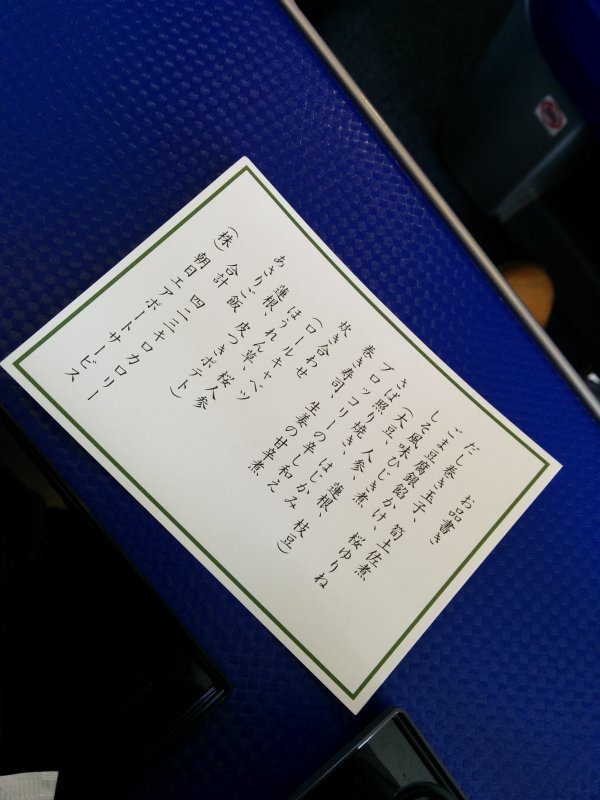 お品書き
だし巻き玉子、筍土佐煮
ごま豆腐銀餡かけ、桜ゆりね
しそ風味ひじき煮
(大豆、人参、蓮根、枝豆)
さば照り焼き、はじかみ
ブロッコリーの辛し和え
巻き寿司、生姜の甘辛煮
炊き合わせ
(ロールキャベツ
ほうれん草、桜人参
蓮根、皮つきポテト)
あさりご飯
合計 四二三キロカロリー
(株)朝日エアポートサービス